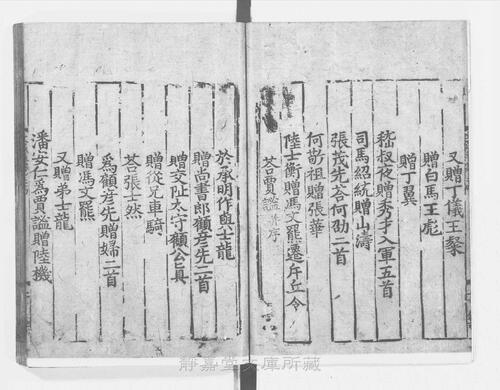 又贈丁儀王粲
贈白馬王彪
贈丁翼
嵇叔夜贈秀才入軍五首
司馬紹統贈山濤
張茂先荅何劭二首
何敬祖贈張華
陸士衡贈馮文羆遷斥丘令
荅賈謐并序
於承明作與士龍
贈尚書郎顧彥先二首
贈交阯太守顧公真
贈從兄車騎
荅張士然
為顧彥先贈婦二首
贈馮文羆
又贈弟士龍
潘安仁為賈謐贈陸機
靜嘉堂文庫所藏